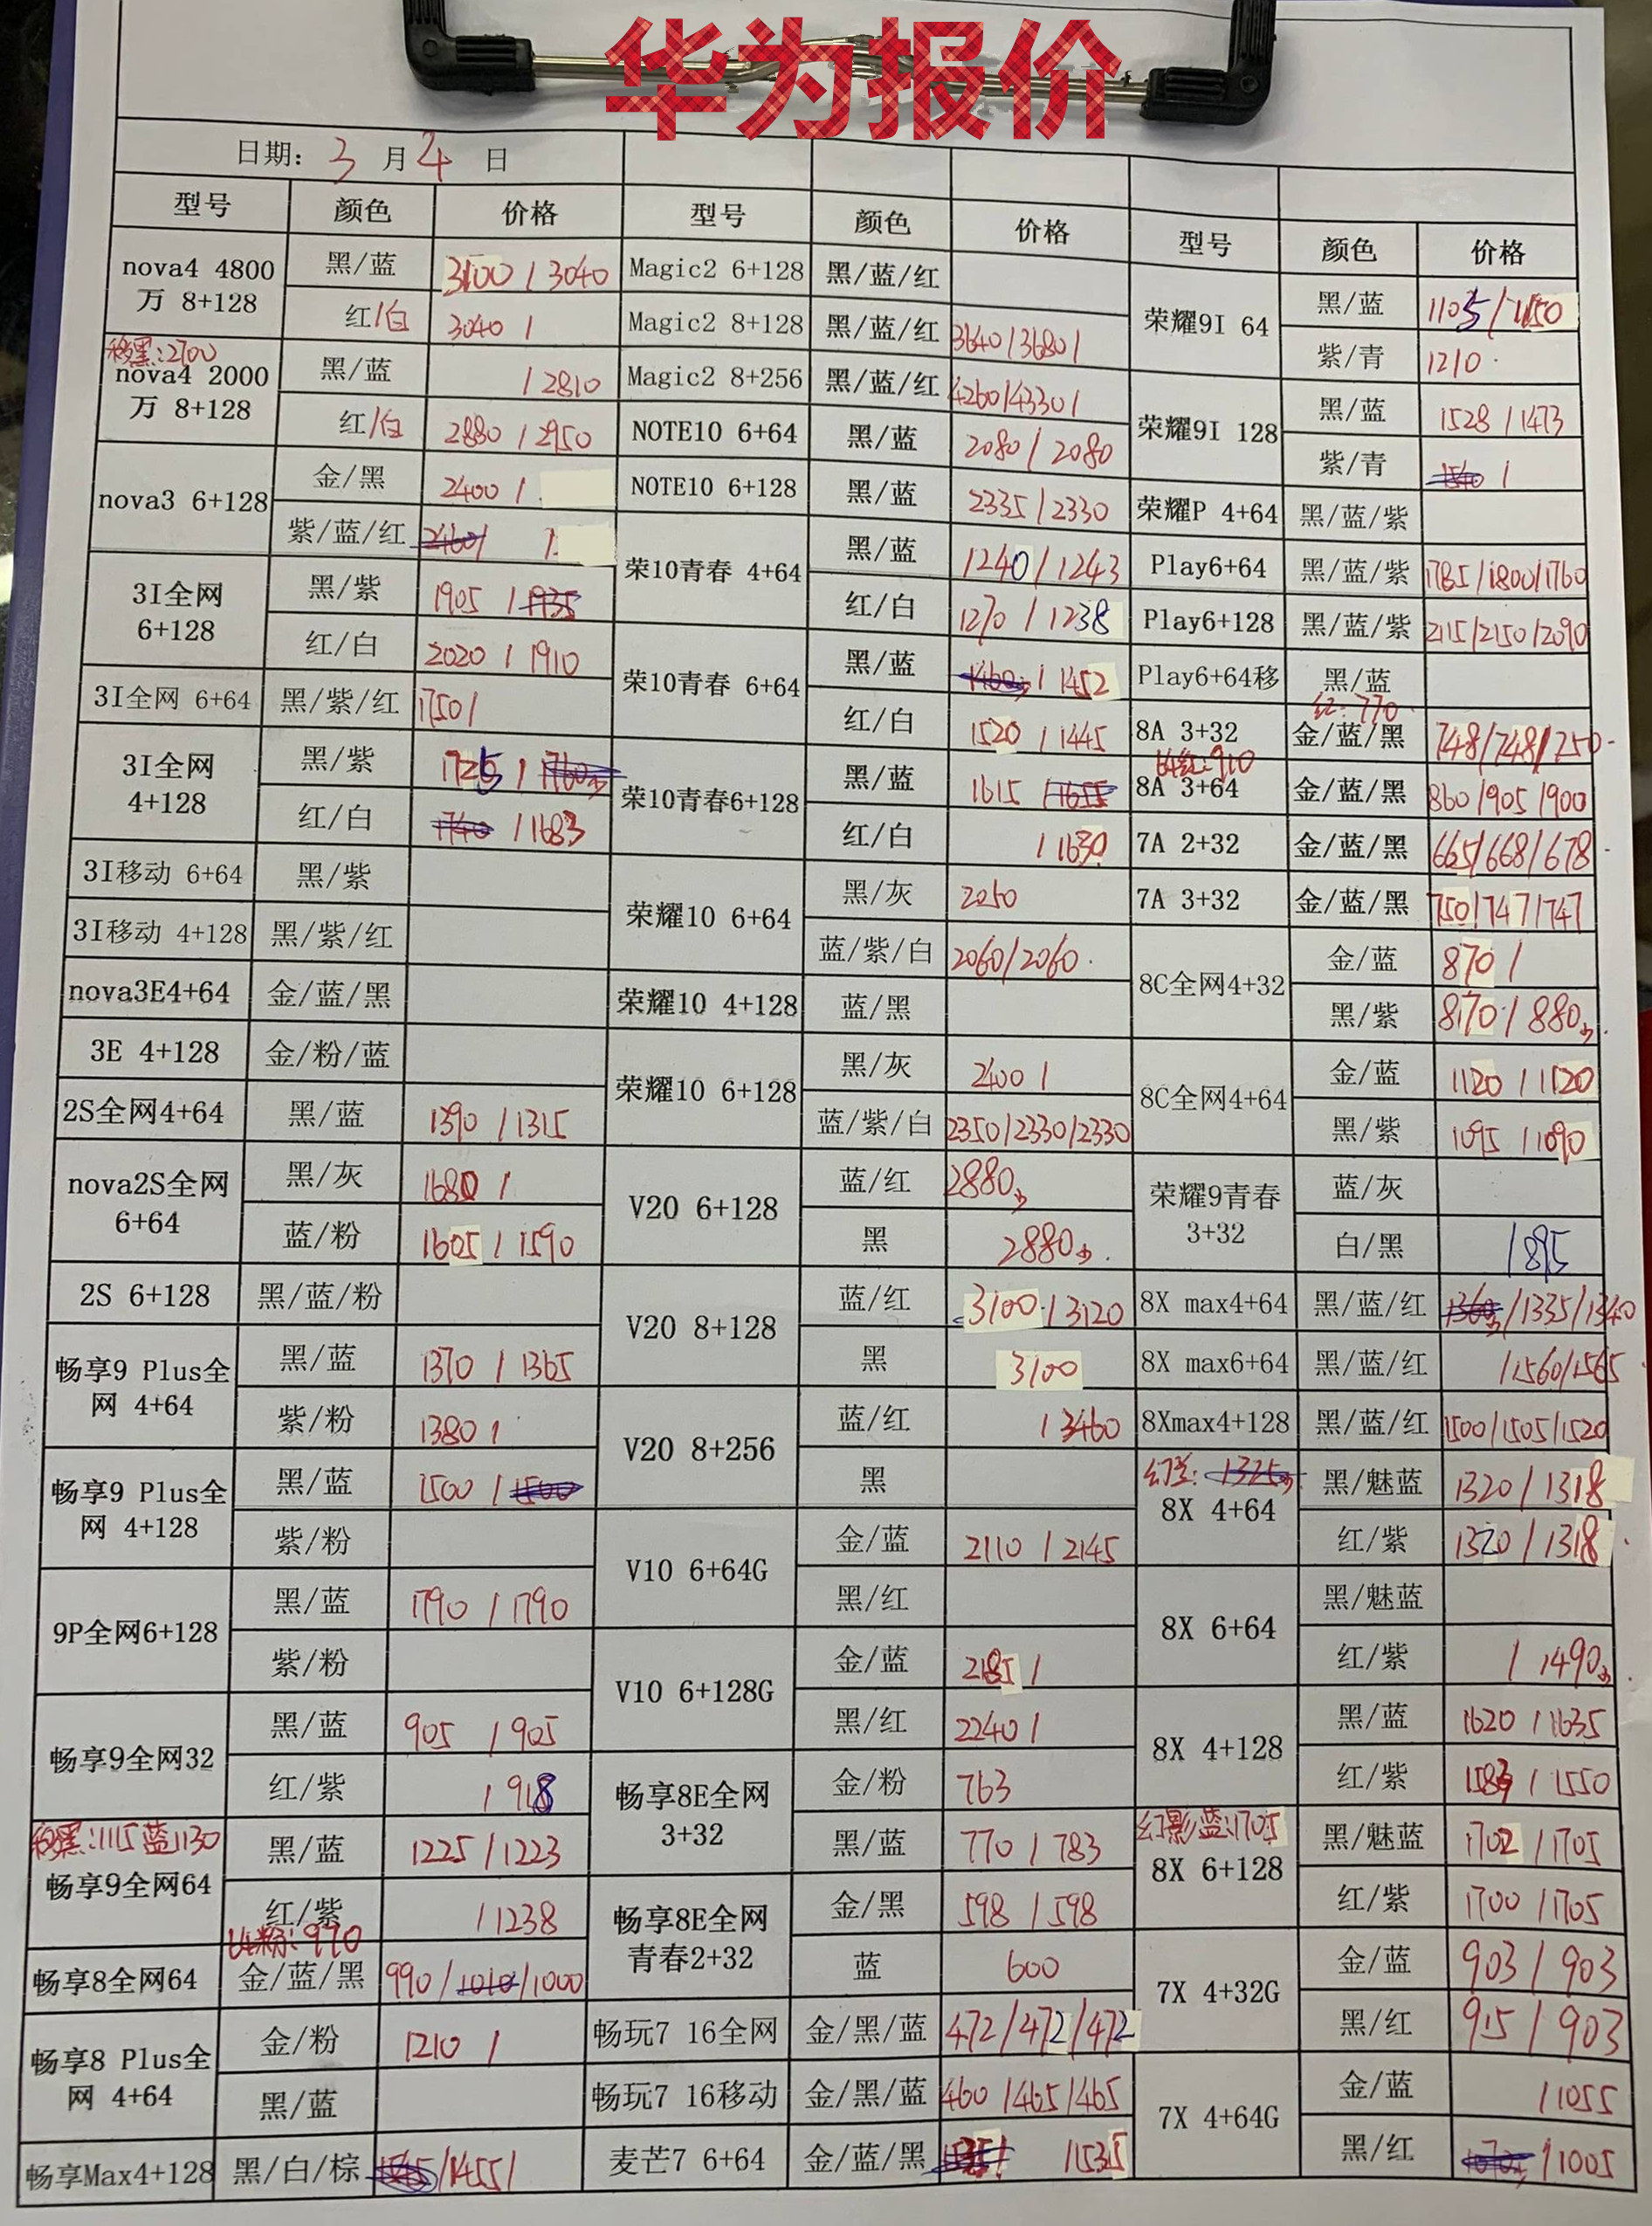 华为报价
日期: 3 月 4 日
型号 颜色 价格 型号 颜色 价格 型号 颜色 价格
nova4 4800万 8+128 黑/蓝 3100 / 3040
红/白 3040 /
移黑:2700
nova4 2000万 8+128 黑/蓝 / 2810
红/白 2880 / 2950
nova3 6+128 金/黑 2400 /
紫/蓝/红 2460/ /
3I全网 6+128 黑/紫 1905 / 1935
红/白 2020 / 1910
3I全网 6+64 黑/紫/红 1750/
3I全网 4+128 黑/紫 1725 / 1760
红/白 1740 / 1683
3I移动 6+64 黑/紫
3I移动 4+128 黑/紫/红
nova3E4+64 金/蓝/黑
3E 4+128 金/粉/蓝
2S全网4+64 黑/蓝 1390 / 1315
nova2S全网 6+64 黑/灰 1680 /
蓝/粉 1605 / 1590
2S 6+128 黑/蓝/粉
畅享9 Plus全网 4+64 黑/蓝 1370 / 1365
紫/粉 1380 /
畅享9 Plus全网 4+128 黑/蓝 1500 / 1500
紫/粉
9P全网6+128 黑/蓝 1790 / 1790
紫/粉
畅享9全网32 黑/蓝 905 / 905
红/紫 / 918
移黑:1115 蓝1130
畅享9全网64 黑/蓝 1225 / 1223
红/紫 / 1238
粉:970
畅享8全网64 金/蓝/黑 990 / 1010 / 1000
畅享8 Plus全网 4+64 金/粉 1210 /
黑/蓝
畅享Max4+128 黑/白/棕 /1455/
Magic2 6+128 黑/蓝/红
Magic2 8+128 黑/蓝/红 3640/3680/
Magic2 8+256 黑/蓝/红 4260/4330/
NOTE10 6+64 黑/蓝 2080 / 2080
NOTE10 6+128 黑/蓝 2335 / 2330
荣10青春 4+64 黑/蓝 1240 / 1243
红/白 1270 / 1238
荣10青春 6+64 黑/蓝 1460 / 1452
红/白 1520 / 1445
荣10青春6+128 黑/蓝 1615 / 1655
红/白 / 1630
荣耀10 6+64 黑/灰 2050
蓝/紫/白 2060/2060
荣耀10 4+128 蓝/黑
荣耀10 6+128 黑/灰 2400 /
蓝/紫/白 2350/2330/2330
V20 6+128 蓝/红 2880
黑 2880
V20 8+128 蓝/红 3100 / 3120
黑 3100
V20 8+256 蓝/红 / 3460
黑
V10 6+64G 金/蓝 2110 / 2145
黑/红
V10 6+128G 金/蓝 2185 /
黑/红 2240 /
畅享8E全网 3+32 金/粉 763
黑/蓝 770 / 783
畅享8E全网青春2+32 金/黑 598 / 598
蓝 600
畅玩7 16全网 金/黑/蓝 472/472/472
畅玩7 16移动 金/黑/蓝 460/465/465
麦芒7 6+64 金/蓝/黑 /1535
荣耀9I 64 黑/蓝 1105 / 1150
紫/青 1210
荣耀9I 128 黑/蓝 1528 / 1473
紫/青 1540 /
荣耀P 4+64 黑/蓝/紫
Play6+64 黑/蓝/紫 1785/1800/1760
Play6+128 黑/蓝/紫 2115/2150/2090
Play6+64移 黑/蓝
红:770
8A 3+32 金/蓝/黑 748/748/750
64红:910
8A 3+64 金/蓝/黑 860/905/900
7A 2+32 金/蓝/黑 665/668/678
7A 3+32 金/蓝/黑 750/747/747
8C全网4+32 金/蓝 870 /
黑/紫 870 / 880
8C全网4+64 金/蓝 1120 / 1120
黑/紫 1095 / 1090
荣耀9青春 3+32 蓝/灰
白/黑 / 895
8X max4+64 黑/蓝/红 1360/1335/1340
8X max6+64 黑/蓝/红 /1560/1565
8Xmax4+128 黑/蓝/红 1500/1505/1520
幻兰: 1325
8X 4+64 黑/魅蓝 1320 / 1318
红/紫 1320 / 1318
8X 6+64 黑/魅蓝
红/紫 / 1490
8X 4+128 黑/蓝 1620 / 1635
红/紫 1583 / 1550
幻影蓝:1705
8X 6+128 黑/魅蓝 1702 / 1705
红/紫 1700 / 1705
7X 4+32G 金/蓝 903 / 903
黑/红 915 / 903
7X 4+64G 金/蓝 / 1055
黑/红 / 1005